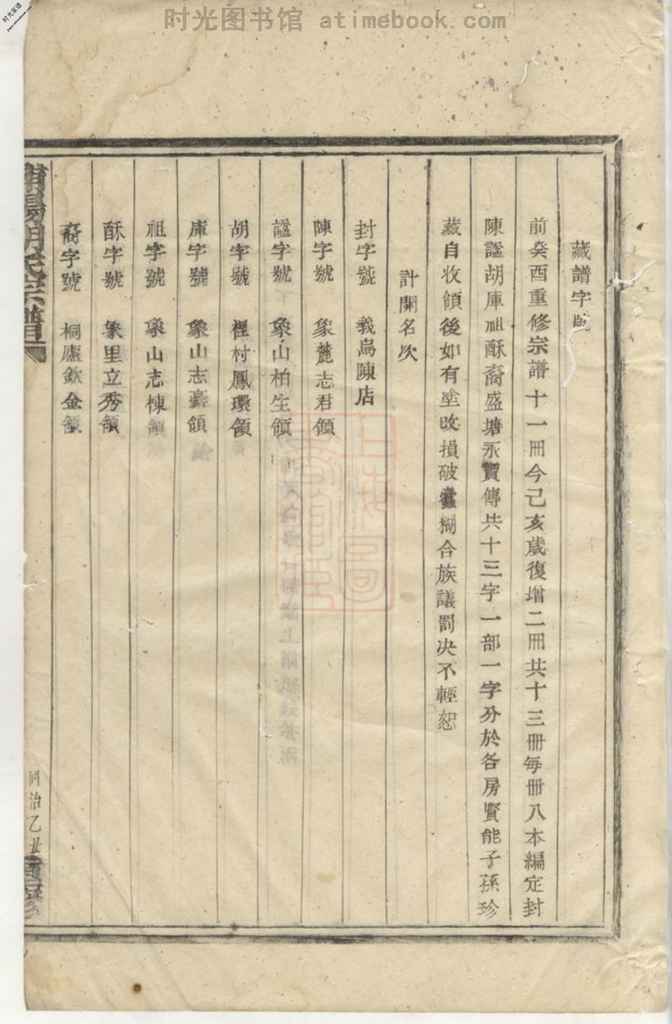 时光图书馆 atimebook.com
藏譜字號
前癸酉重修宗譜十一冊今己亥歲復增二冊共十三冊每冊八本編定封
陳謐胡庫祖酥裔盛塘永賢傳共十三字一部一字分於各房賢能子孫珍
藏自收領後如有塗改損破蠹糊合族議罰决不輕恕
計開名次
封字號 義烏陳店
陳字號 象麓志君領
謐字號 象山柏生領
胡字號 裡村鳳環領
庫字號 象山志 領
祖字號 象山志棟領
酥字號 象里立秀領
裔字號 桐廬欽金領
胡氏宗譜
同治乙丑重修